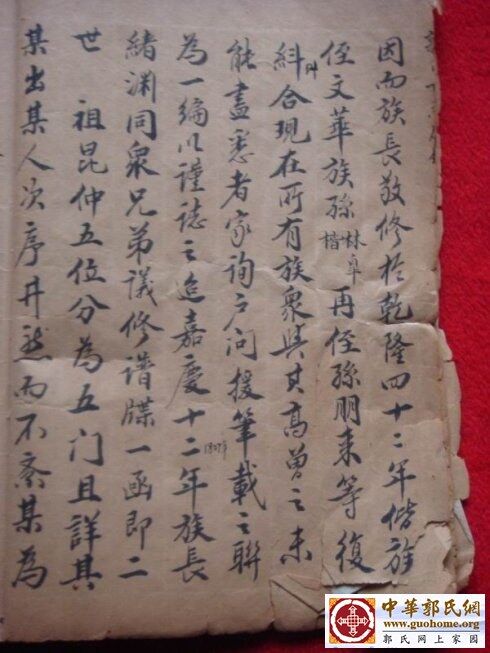 因而族長敬修於乾隆四十二年偕族
侄文華族孫林皐楷再侄孫朋来等復
糾合現在所有族衆與其高曾之未
能盡悉者家詢户问援筆載之聯
為一编以謹誌之迨嘉慶十二1807年年族長
緒渊同衆兄弟議修譜牒一函即二
世 祖昆仲五位分為五门且詳其
某出某人次序井然而不紊某為
中華郭氏網
www.guohome.org
郭氏网上家园